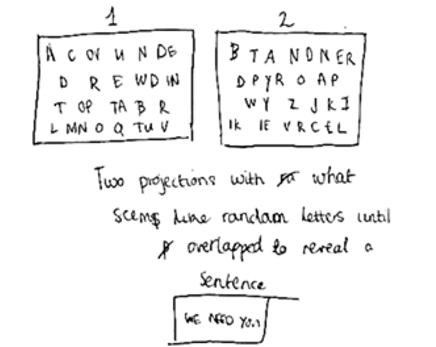 1 2
A C OV U N DE
D R E WD IN
T OP TA B R
L MN O Q TU V
B T A N D N ER
D P Y R O A P
W Y Z J K I
IK IE V R C E L
Two projections with what
seems like random letters until
overlapped to reveal a
sentence
WE NEED YOU